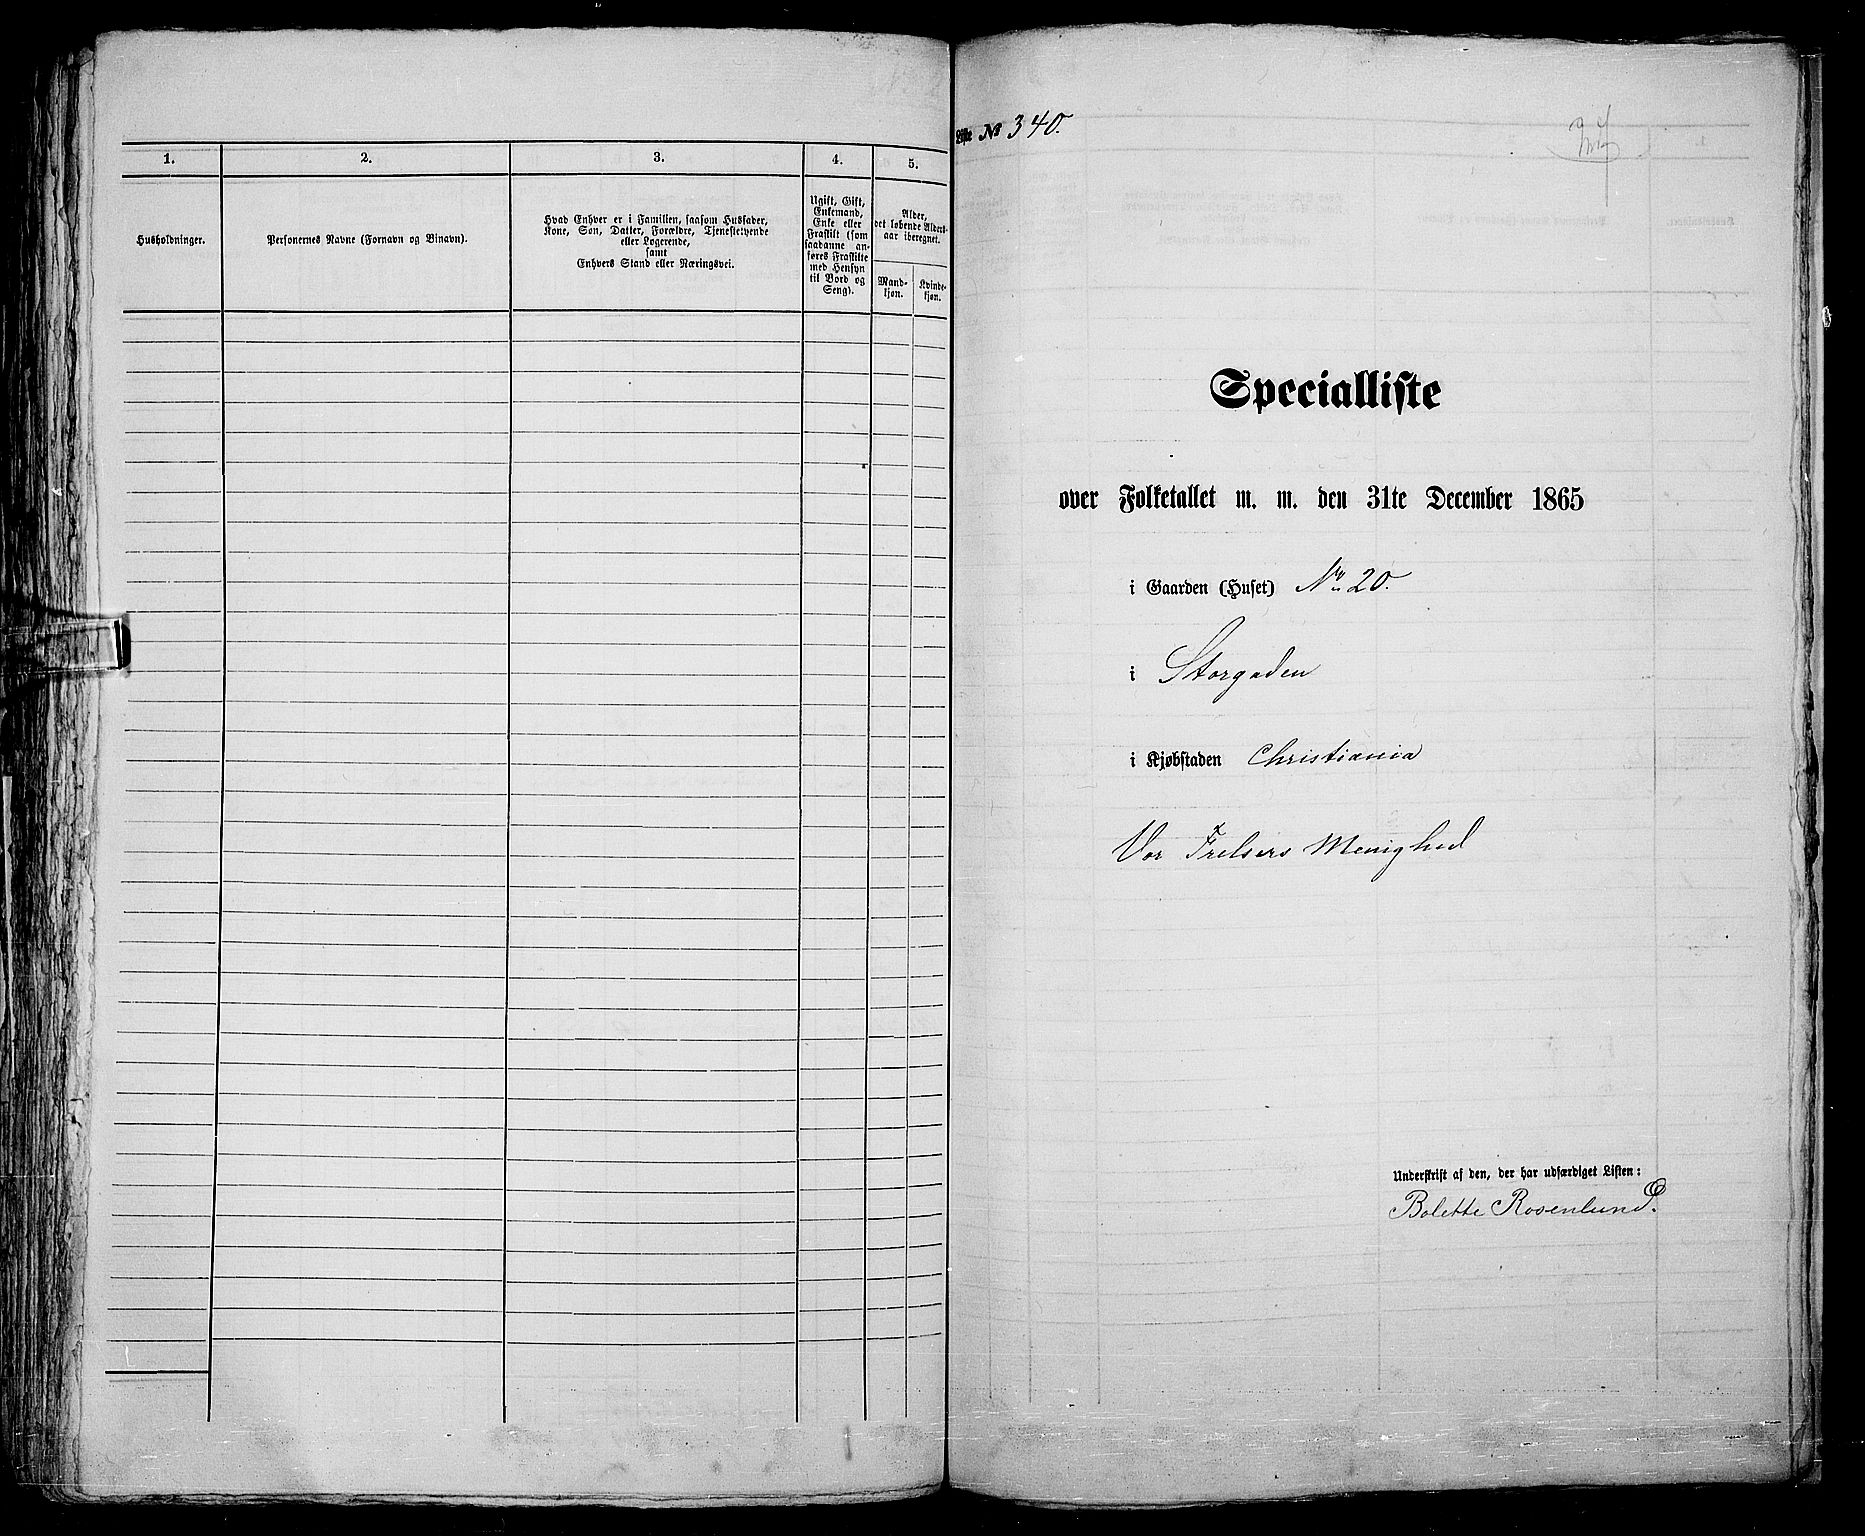 1.
2.
3.
4.
5.
Husholdninger.
Personernes Navne (Fornavn og Binavn).
Hvad Enhver er i Familien, saasom Husfader,
Kone, Søn, Datter, Forældre, Tjenestetyende
eller Logerende,
samt
Enhvers Stand eller Næringsvei.
Ugift, Gift,
Enkemand,
Enke eller
Fraskilt (som
saadanne an-
føres Fraskilte
med Hensyn
til Bord og
Seng).
Alder,
det løbende Alders-
aar iberegnet.
Mand-
kjøn.
Kvinde-
kjøn.
Liste № 340.
Specialliste
over Folketallet m. m. den 31te December 1865
i Gaarden (Huset) No 20.
i Storgaden
i Kjøbstaden Christiania
Vor Frelsers Menighed
Underskrift af den, der har udfærdiget Listen:
Bolette Rosenlund.